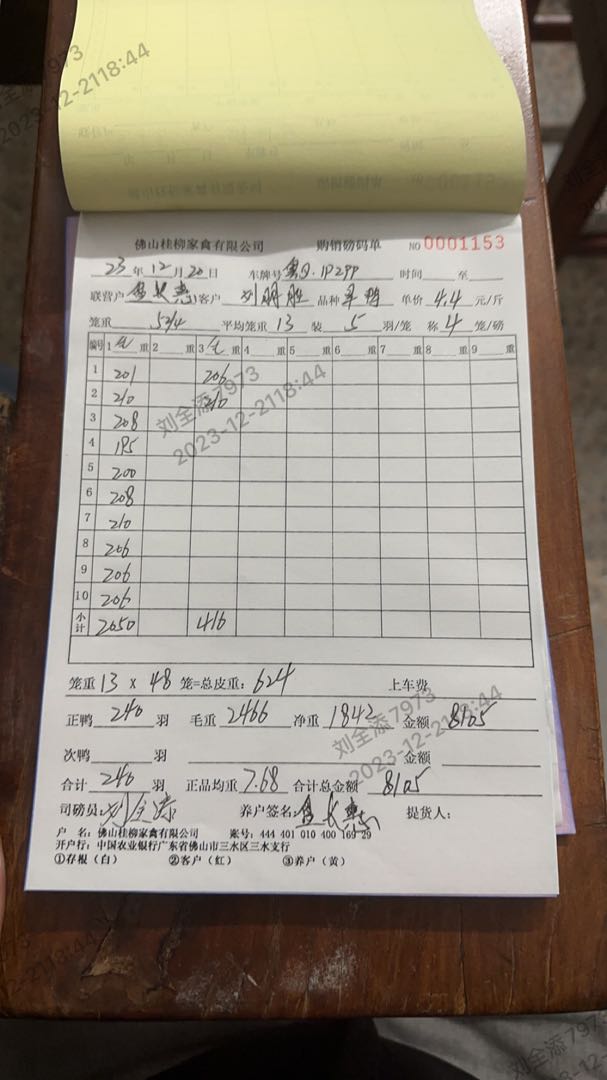 佛山桂柳家禽有限公司 购销磅码单 NO 0001153
23年12月20日 车牌号 1P299 时间 至
联营户 客户 刘 胜 品种 鸭 单价 4.4 元/斤
笼重 52/4 平均笼重 13 装 5 羽/笼 称 4 笼/磅
编号 1 毛 重 2 重 3 毛 重 4 重 5 重 6 重 7 重 8 重 9 重
1 201 206
2 210 210
3 208
4 195
5 200
6 208
7 210
8 206
9 206
10 206
小计 2050 416
笼重 13 x 48 笼=总皮重: 624 上车费
正鸭 240 羽 毛重 2466 净重 1842 金额 8105
次鸭 羽 金额
合计 240 羽 正品均重 7.68 合计总金额 8105
司磅员: 刘全添 养户签名: 提货人:
户 名: 佛山桂柳家禽有限公司 账号: 444 401 010 400 169 29
开户行: 中国农业银行广东省佛山市三水区三水支行
①存根（白） ②客户（红） ③养户（黄）
刘全添7973
2023-12-2118:44
刘全添7973
2023-12-2118:44
刘全添7973
2023-12-2118:44